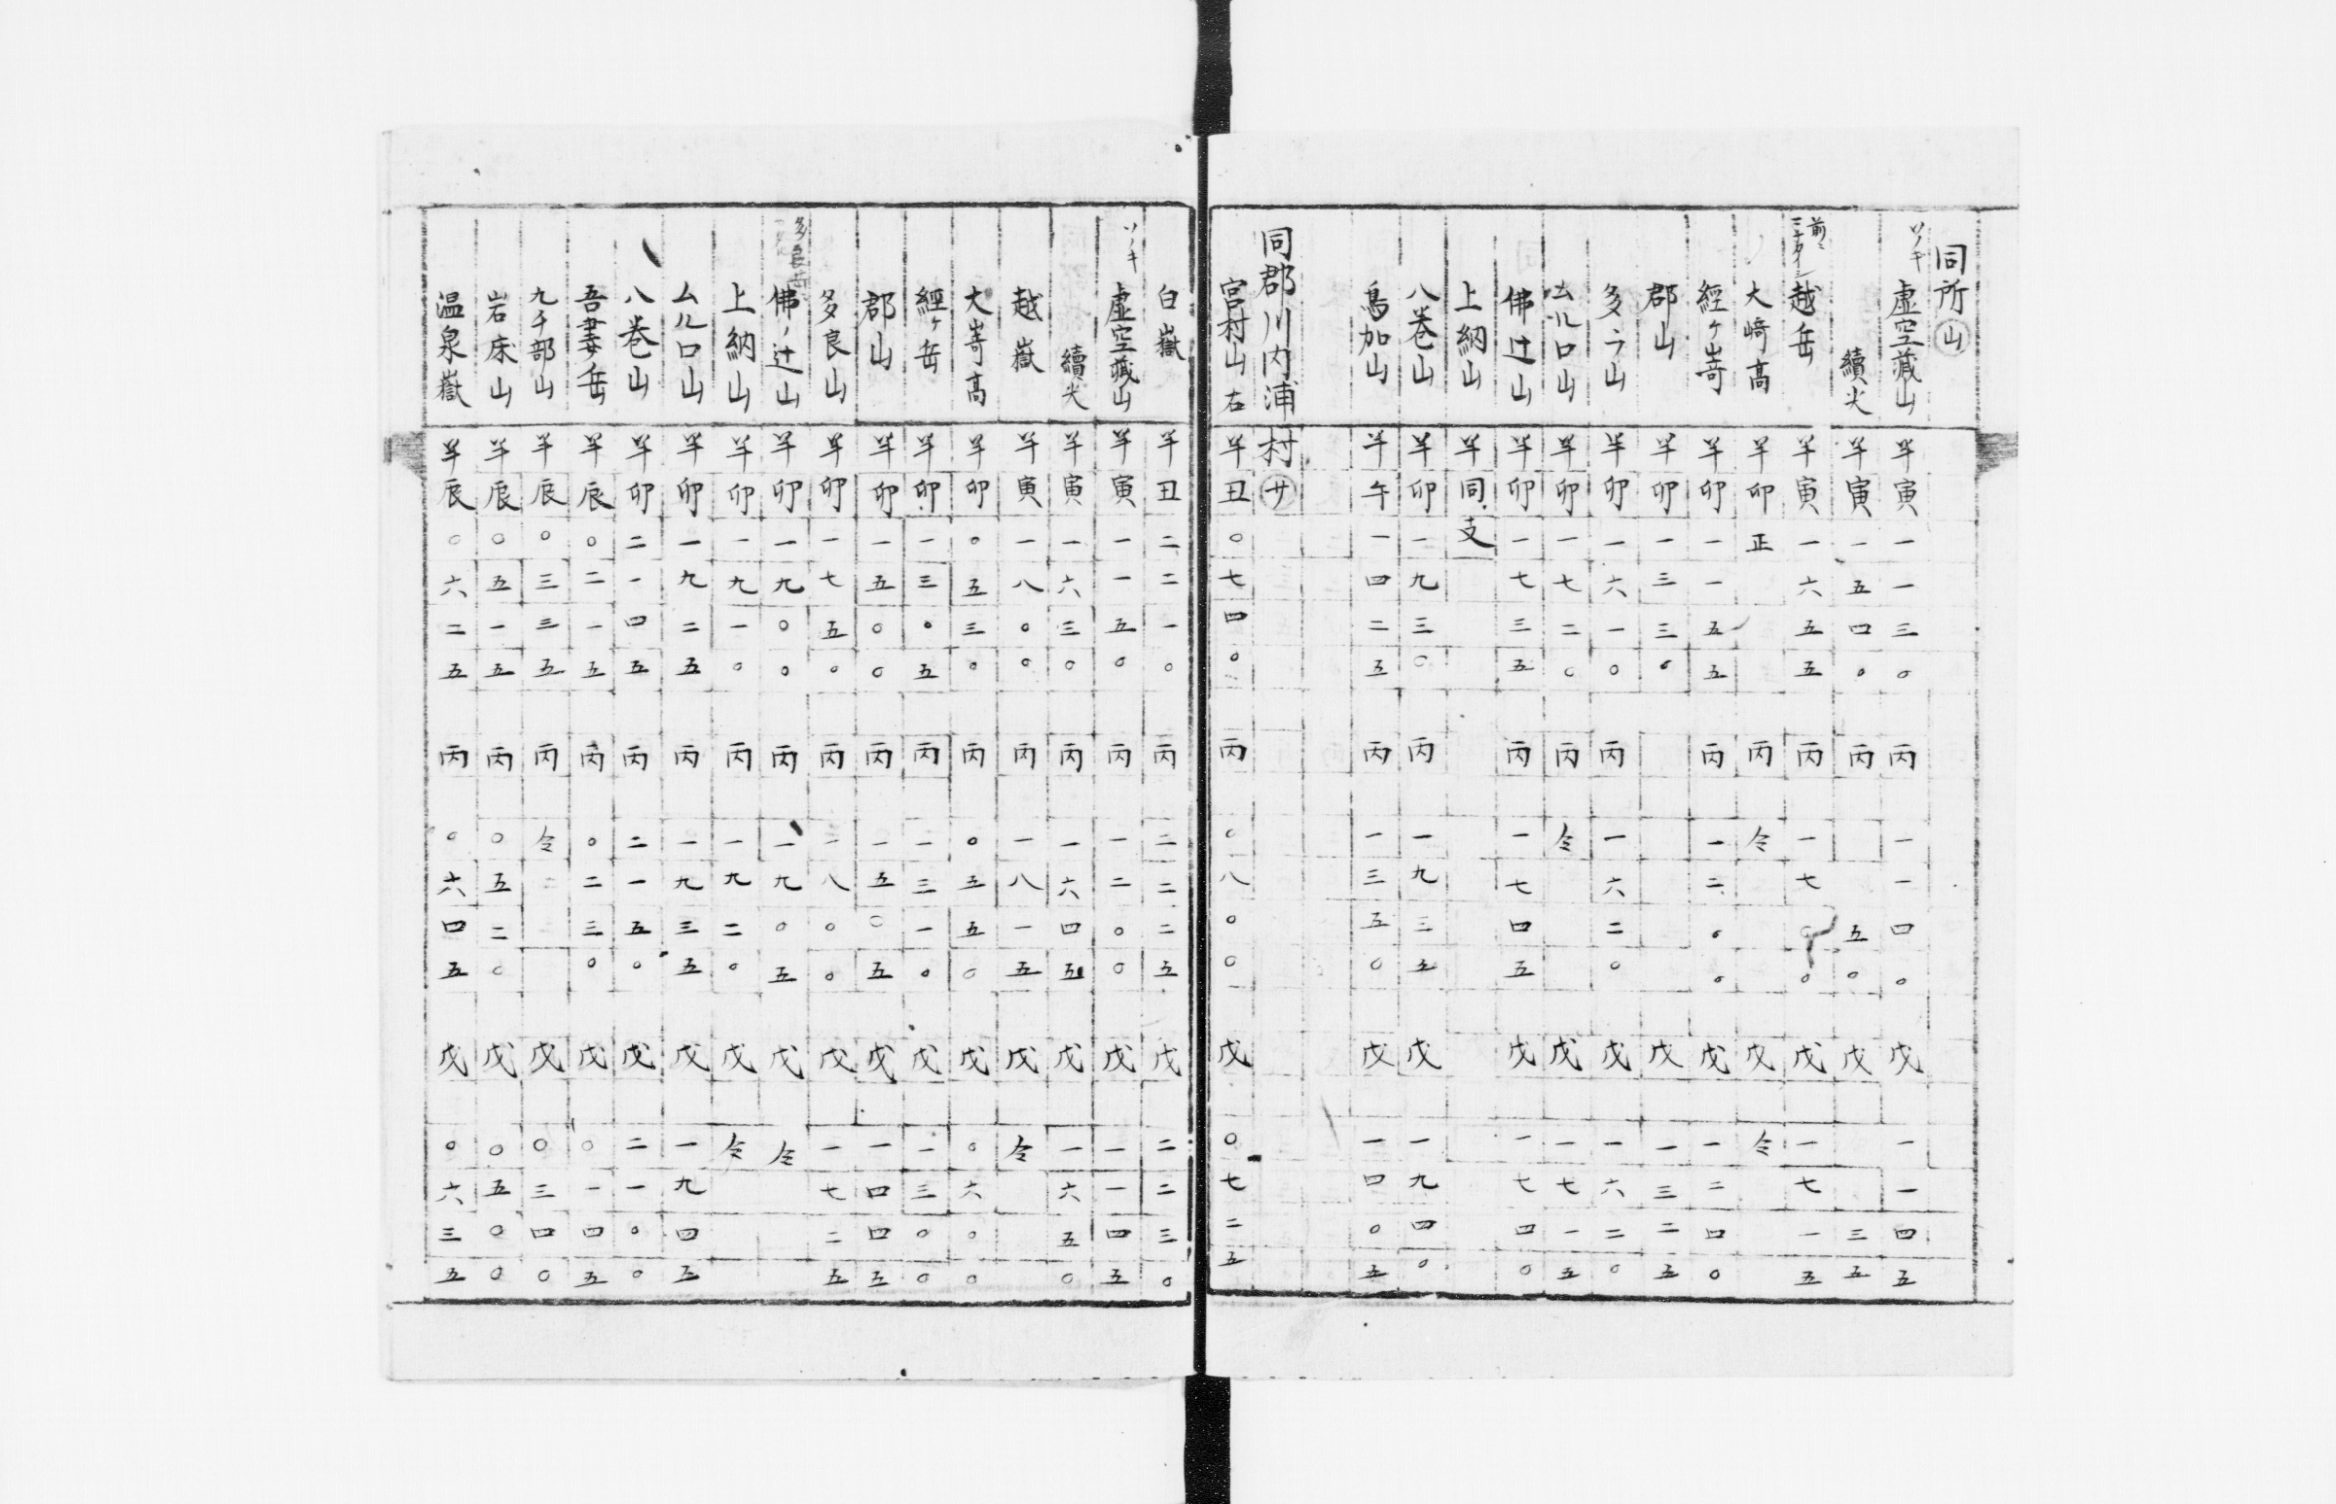 同所㊤山
ソノキ 虚空藏山 半寅 一一三〇 丙 一一四〇 戊 一一四五
續尖 半寅 一五四〇 丙 五〇 戊 三五
越岳 半寅 一六五五 丙 一七〇〇 戊 一七一五
大﨑高 半卯 正 丙 仝 戊 仝
經ケ嵜 半卯 一一五五 丙 一二〇〇 戊 一二四〇
郡山 半卯 一三三〇 戊 一三二五
多ラ山 半卯 一六一〇 丙 一六二〇 戊 一六二〇
ムルロ山 半卯 一七二〇 丙 仝 戊 一七一五
佛辻山 半卯 一七三五 丙 一七四五 戊 一七四〇
上納山 半同支
八巻山 半卯 一九三〇 丙 一九三五 戊 一九四〇
鳥加山 半午 一四二五 丙 一三五〇 戊 一四〇五
同郡川内浦村㋚
宮村山右 半丑 〇七四〇 丙 〇八〇〇 戊 〇七二五
白嶽 半丑 二二一〇 丙 二二二五 戊 二二三〇
ソノキ 虚空藏山 半寅 一一五〇 丙 一二〇〇 戊 一一四五
續尖 半寅 一六三〇 丙 一六四五 戊 一六五〇
越嶽 半寅 一八〇〇 丙 一八一五 戊 仝
大嵜高 半卯 〇五三〇 丙 〇五五〇 戊 〇六〇〇
經ケ岳 半卯 一三〇五 丙 一三一〇 戊 一三〇〇
郡山 半卯 一五〇〇 丙 一五〇五 戊 一四四五
多良山 半卯 一七五〇 丙 一八〇〇 戊 一七二五
佛ノ辻山 半卯 一九〇〇 丙 一九〇五 戊 仝
上納山 半卯 一九一〇 丙 一九二〇 戊 仝
ムルロ山 半卯 一九二五 丙 一九三五 戊 一九四五
八巻山 半卯 二一四五 丙 二一五〇 戊 二一〇〇
吾妻岳 半辰 〇二一五 丙 〇二三〇 戊 〇一四五
九千部山 半辰 〇三三五 丙 仝 戊 〇三四〇
岩床山 半辰 〇五一五 丙 〇五二〇 戊 〇五〇〇
温泉嶽 半辰 〇六二五 丙 〇六四五 戊 〇六三五